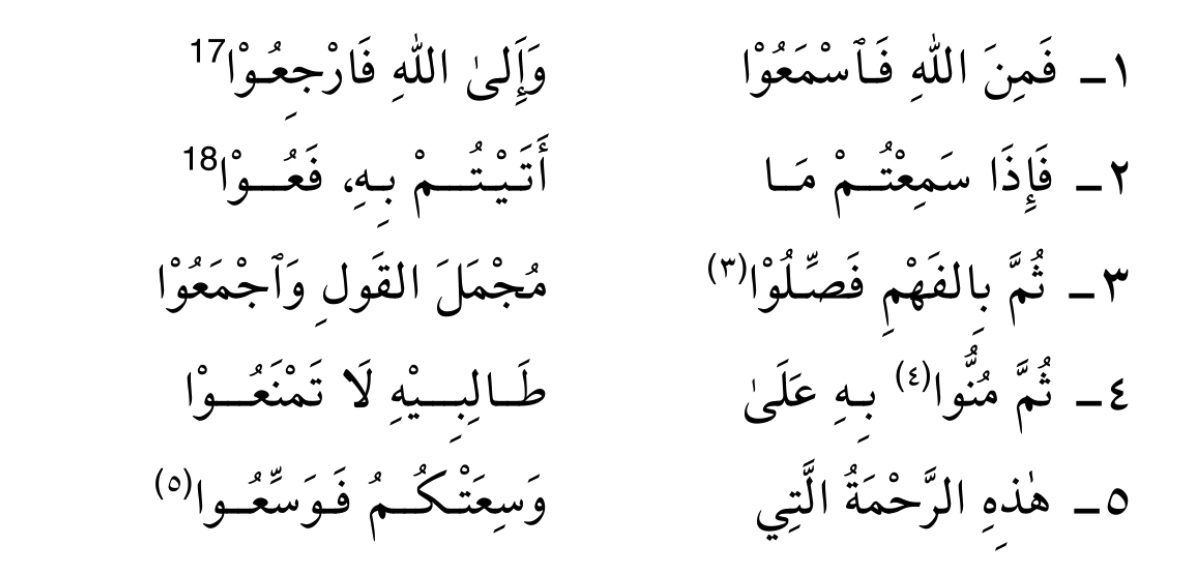 ١ـ فَمِنَ اللّٰهِ فَٱسْمَعُوْا وَإِلَىٰ اللّٰهِ فَارْجِعُوْا17
٢ـ فَإِذَا سَمِعْتُمْ مَا أَتَيْتُمْ بِهِ، فَعُوْا18
٣ـ ثُمَّ بِالفَهْمِ فَصِّلُوْا(٣) مُجْمَلَ القَولِ وَٱجْمَعُوْا
٤ـ ثُمَّ مُنُّوا(٤) بِهِ عَلَىٰ طَالِبِيْهِ لَا تَمْنَعُوْا
٥ـ هٰذِهِ الرَّحْمَةُ الَّتِي وَسِعَتْكُمُ فَوَسِّعُوا(٥)